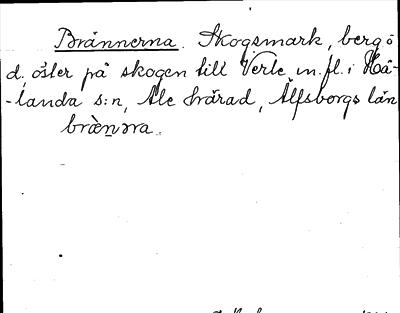 Brännerna. Skogsmark, berg ö
d., öster på skogen till Verle m. fl. i Hå-
-landa s:n, Ale härad, Älfsborgs län
bræ̀nəra.